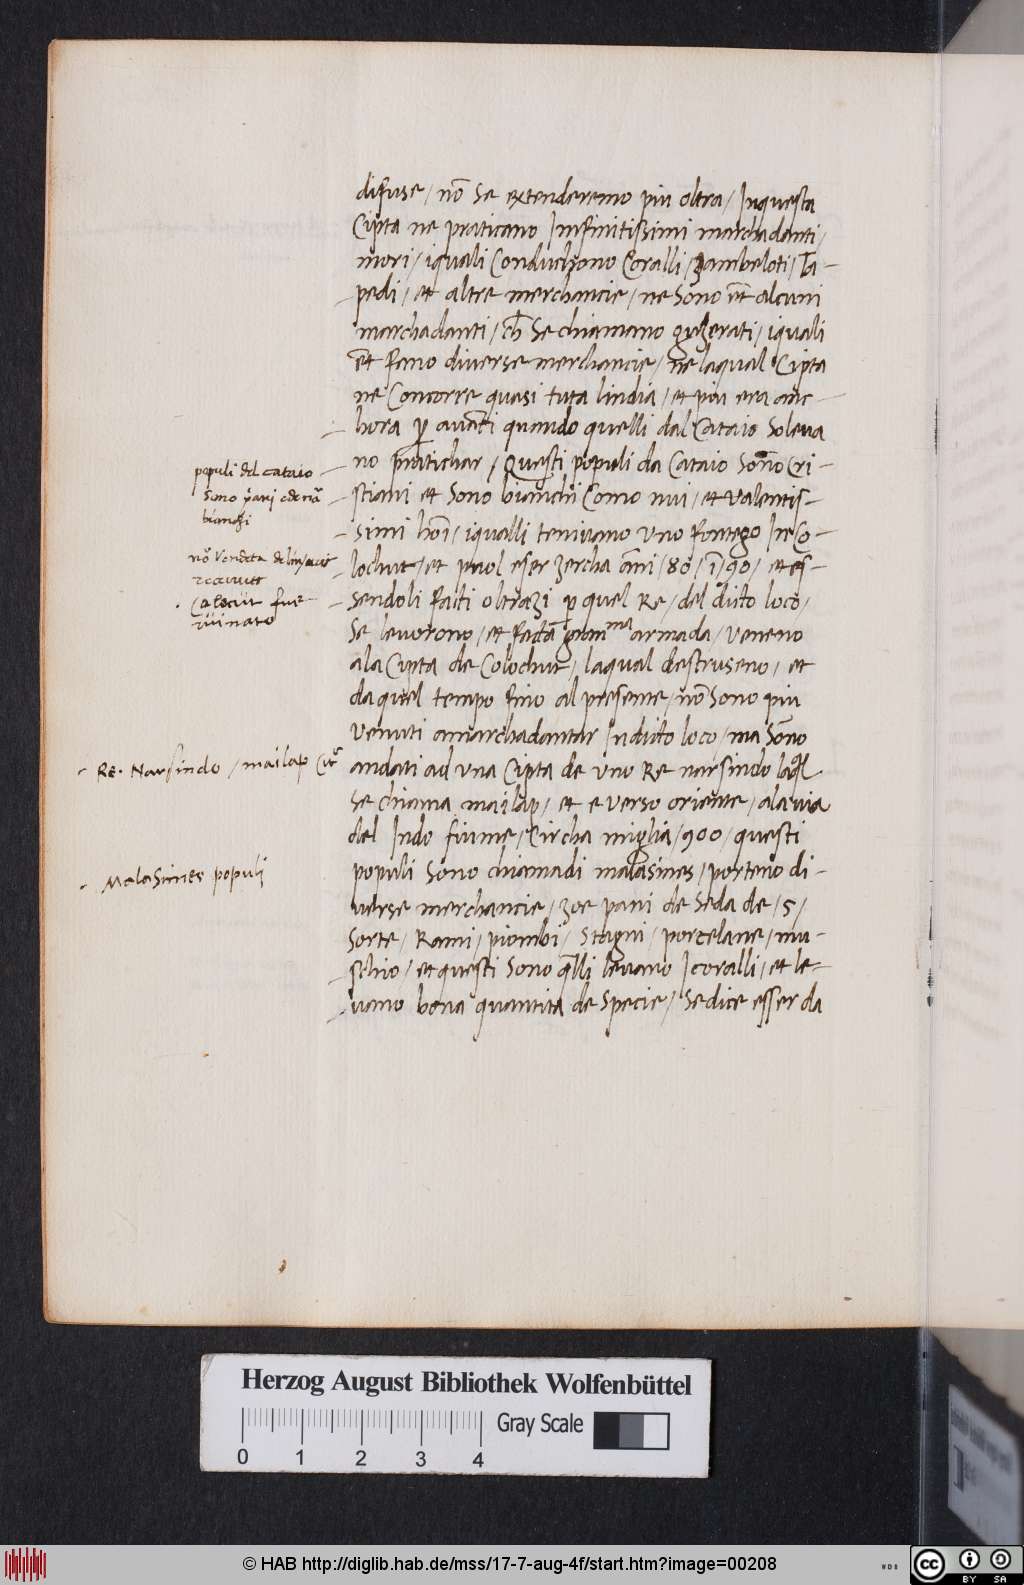 difuse / nõ se extenderemo piu oltra / Inquesta
Cipta ne praticano Infinitissimi marchadanti /
mori / iquali Conduchono Coralli / zambeloti / Ta-
pedi / et altre merchancie / ne sono et alcuni
marchadanti / ch̃ se chiamano guzerati / iquali
et fano diverse merchancie / ne laqual Cipta
ne Concorre quasi tuta lindia / et piu era anc-
hora p avãti quando quelli dal Cataio soleva
no pratichar / Questi populi da Cataio sono Cri-
stiani et sono bianchi Como nui / et valentis-
simi homĩ / iqualli tenivano uno fontego In Co-
lochut / et puol eser zercha anni / 80 / ĩ / 90 / et es-
sendoli fatti oltrazi p quel Re / del ditto loco /
se levorono / et fatã gran.ma armada / veneno
ala Cipta de Colochut / laqual destruseno / et
da quel tempo fino al presente / nõ sono piu
venuti amarchadantar In ditto loco / ma sono
andati ad una Cipta de uno Re narsindo laql
se chiama mailap / et e verso oriente / ala via
del Indo fiume / Circha miglia / 900 / questi
populi sono chiamadi malasines / porteno di-
verse merchancie / zoe pani de seda de / 5 /
sorte / Rami / piombi / stagni / porcelane / mu-
schio / et questi sono qlli levano I coralli / et le-
vano bona quantita de specie / se dice esser da
populi del cataio
sono
bianchi
Calecut fue
ruinato
Re. Narsindo / mailap
MalaSines populi
Herzog August Bibliothek Wolfenbüttel
Gray Scale
0 1 2 3 4
© HAB http://diglib.hab.de/mss/17-7-aug-4f/start.htm?image=00208
WDB
cc BY SA